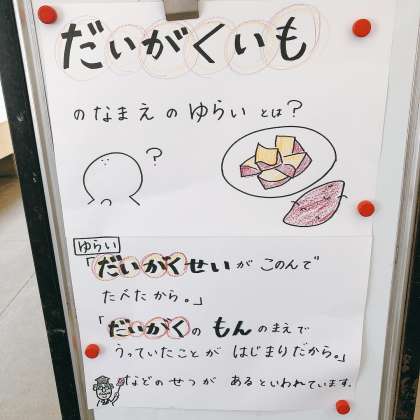 だいがくいも
のなまえのゆらいとは?
?
ゆらい
「だいがくせいがこのんで
たべたから。」
「だいがくのもんのまえで
うっていたことがはじまりだから。」
などのせつがあるといわれています。